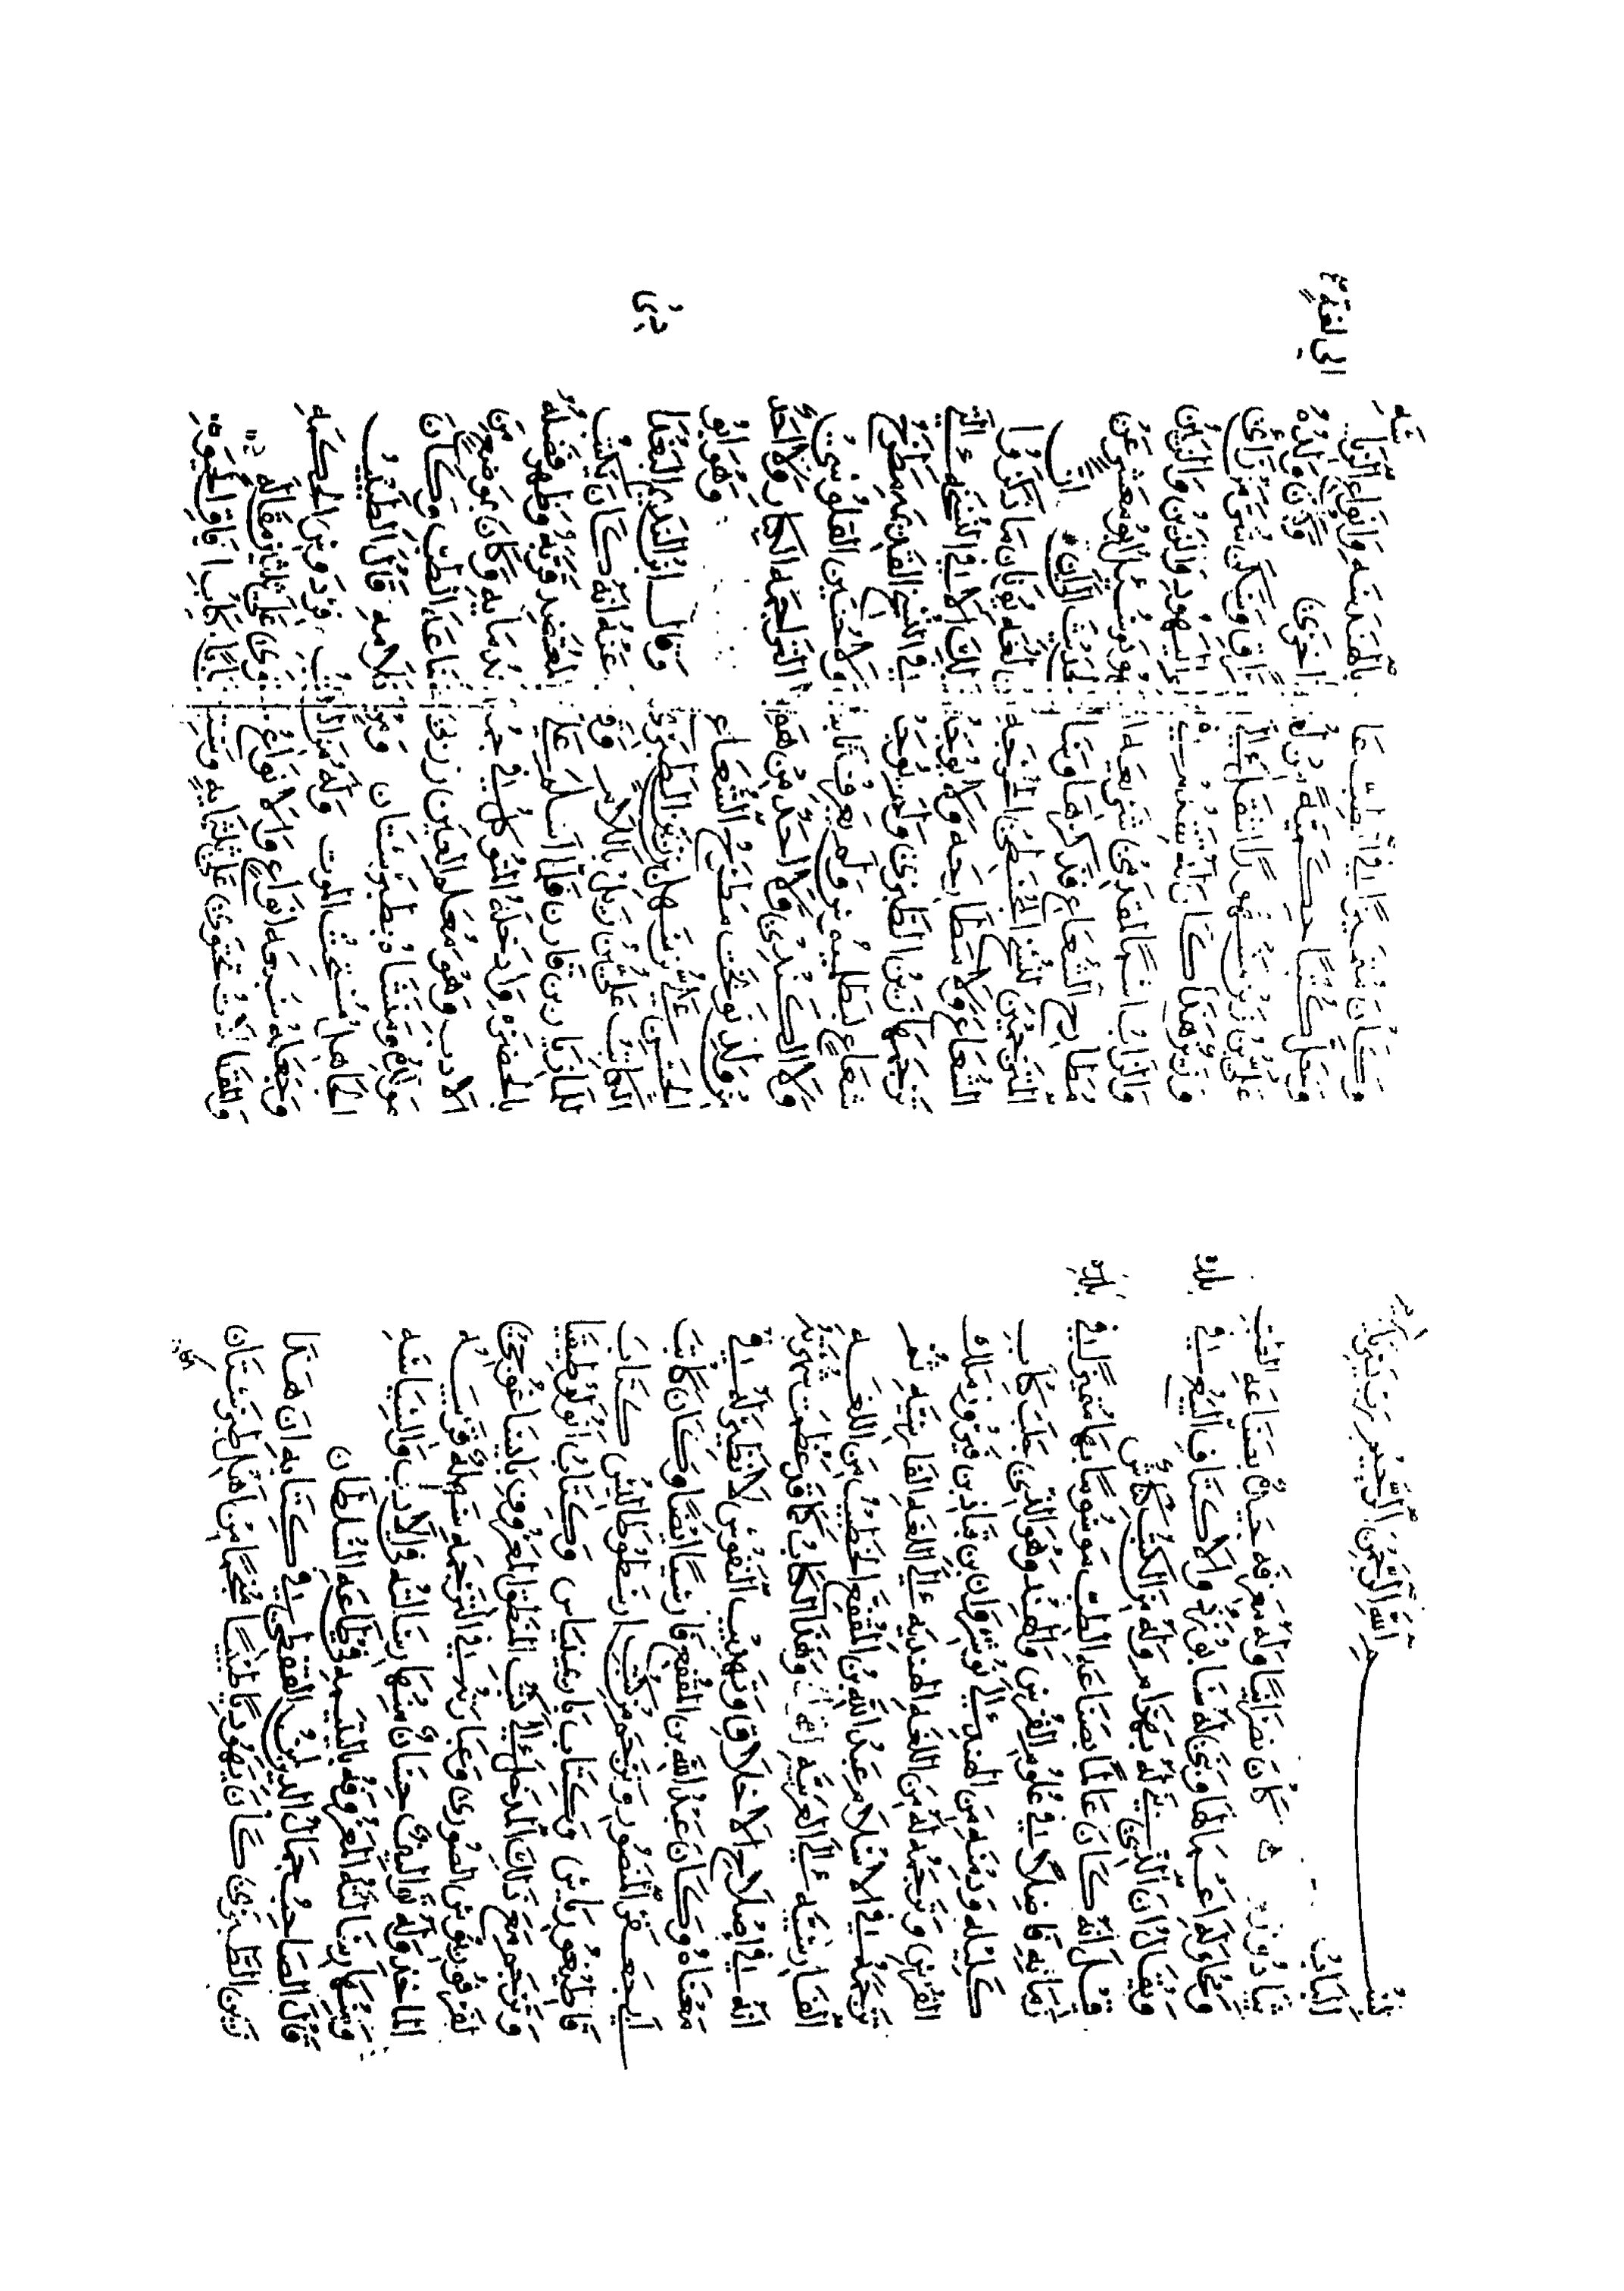 بسم الله الرحمن الرحيم رب يسر
كان نصرانيا وله معرفة جيدة بصناعة الطب
ويقال ان الذي نقله بهرام وله من الكتب كناش
قيل انه كان عالما بصناعة الطب موسوما بها متميزا في
زمانه فاضلا في علوم الفرس والهند وهو الذي جلب كتاب
كليلة ودمنة من الهند الى انوشروان بن قباذ بن فيروز ملك
الفرس وترجمه له من اللغة الهندية الى اللغة الفارسية ثم
ترجمه في الاسلام عبد الله بن المقفع الخطيب من اللغة
الفارسية الى العربية وهذا الكتاب كما قد عظمت شهرته
انه في اصلاح الاخلاق وتهذيب النفوس لا نظير له في
معناه وكان عبد الله بن المقفع فارسيا ايضا وكان كاتب
ابي جعفر المنصور وترجم من كتب ارسطوطاليس كتاب
قاطيغورياس وكتاب باريمينياس وكتاب انولوطيقا
وترجم مع ذلك المدخل الى كتب المنطق المعروف بايساغوجي
لفرفوريوس الصوري وعبارته في الترجمة سهلة قريبة
الماخذ وله تواليف اخرى حسان منها رسالته في الادب والسياسة
ومنها رسالته المعروفة باليتيمة في طاعة السلطان
قال الصاحب جمال الدين القفطي في كتابه ان هذا
ربن الطبري كان يهوديا طبيبا منجما من اهل طبرستان
وكان متميزا في الطب عالما بالهندسة وانواع الرياضة
وحل كتبا حكمية من لغة الى لغة اخرى وكان ولده
علي بن ربن مشهورا انتقل الى العراق وسكن سر من راى
وربن هذا كان له تقدم في اليهود والربن والربين
والراب اسما لمقدمي شريعة اليهود وسئل ابو معشر عن
مطارح الشعاع فذكرها وساق الحديث الى ان
المترجمين لنسخ المجسطي المخرجة من لغة يونان ما ذكروا
الشعاع ولا مطارحه ولا يوجد ذلك الا في النسخة التي
ترجمها ربن الطبري ولم يوجد في النسخ القديمة مطرح
شعاع بطلميوس ولم يعرفه ثابت ولا حنين القلوسي
ولا الكندي ولا احد من هؤلاء التراجمة الكبار ولا احد
من ولد نوبخت مطرح الشعاع وهو ابو
الحسن علي بن سهل بن ربن الطبري وقال ابن النديم البغدادي
الكاتب علي بن ربل باللام وقال عنه انه كان يكتب
للمازيار بن قارن فلما اسلم على يد المعتصم قربه وظهر فضله
بالحضرة وادخله المتوكل في جملة ندمائه وكان بموضع من
الادب وهو معلم صناعة الطب وكان
مولده ومنشاه بطبرستان ومن كلامه قال الطبيب
الجاهل مستحث الموت وله من الكتب فردوس الحكمة
وجعله سبعة انواع والانواع تحتوي على ثلثين مقالة
والمقالات تحتوي على ثلثماية وستين بابا كتاب ارفاق الحيوة